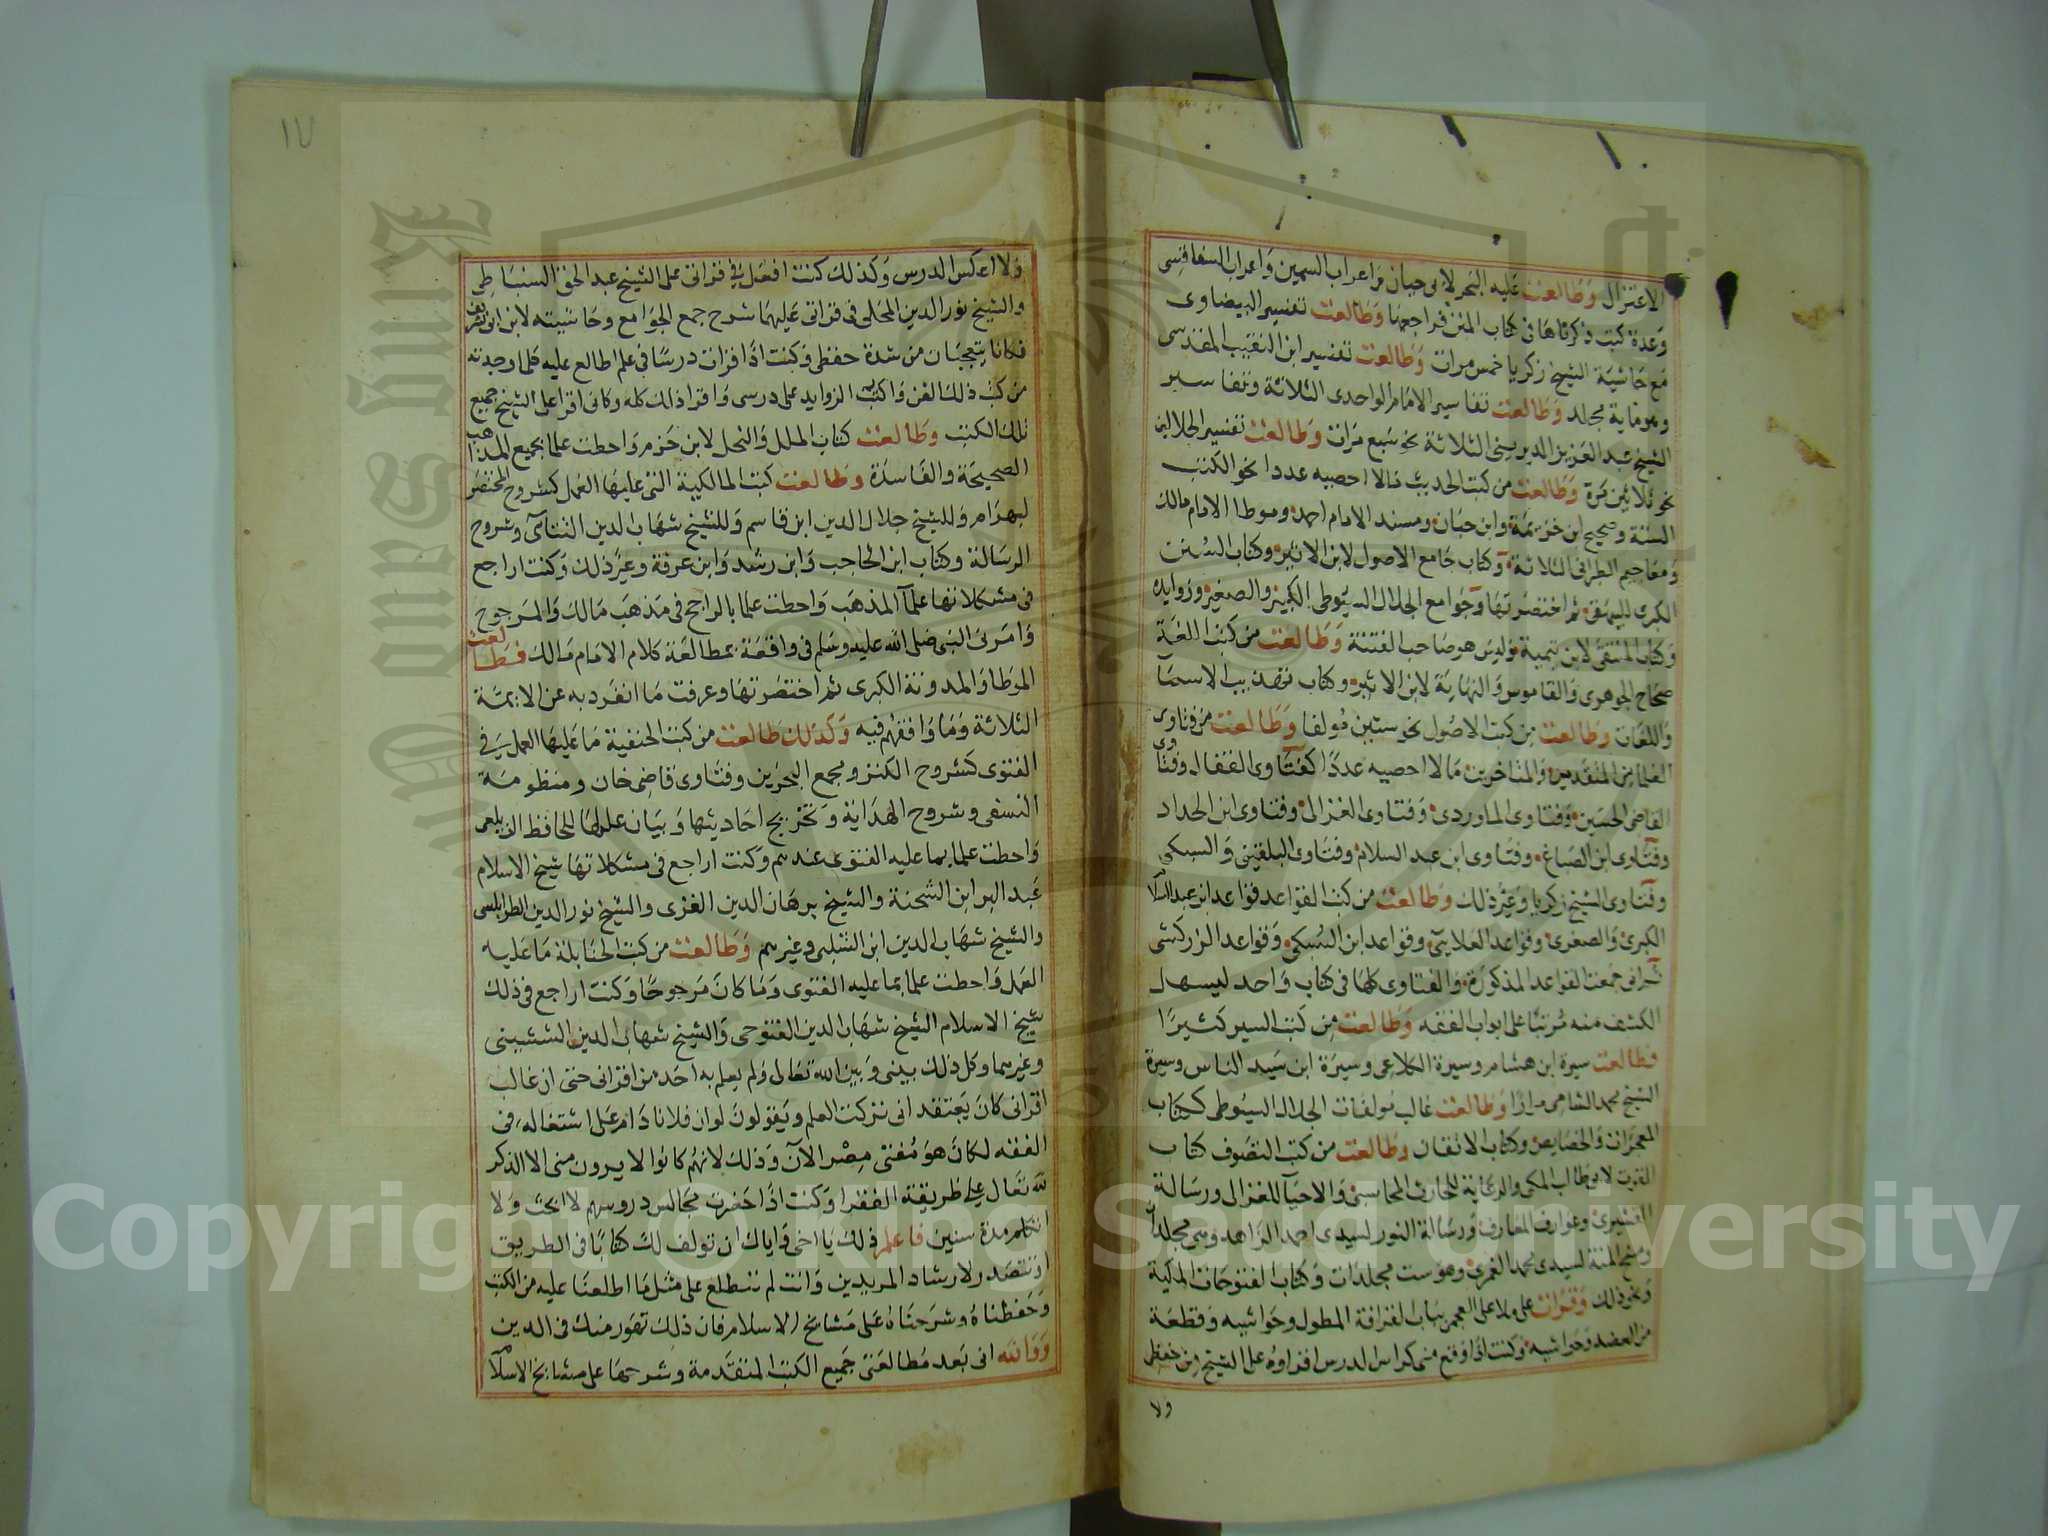 الاعتزال وطالعت عليه البحر لابى حيان واعراب السمين واعراب السفاقسى
وعدة كتب ذكرناها فى كتاب المنن فراجعها وطالعت تفسير البيضاوى
مع حاشية الشيخ زكريا خمس مرات وطالعت تفسير ابن النقيب المقدسى
وهو مائة مجلد وطالعت تفاسير الامام الواحدى الثلاثة وتفاسير
الشيخ عبد العزيز الديرينى الثلاثة نحو سبع مرات وطالعت تفسير الجلالين
نحو ثلاثين مرة وطالعت من كتب الحديث مالا احصيه عددا نحو الكتب
الستة وصحيح ابن خزيمة وابن حبان ومسند الامام احمد وموطا الامام مالك
ومعاجيم الطبرانى الثلاثة وكتاب جامع الاصول لابن الاثير وكتاب السنن
الكبرى للبيهقى ثم اختصرتها وجوامع الجلال السيوطى الكبير والصغير وزوايده
وكتاب المنتقى لابن تيمية وليس هو صاحب الفتنة وطالعت من كتب اللغة
صحاح الجوهرى والقاموس والنهاية لابن الاثير وكتاب تهذيب الاسما
واللغات وطالعت من كتب الاصول نحو ستين مولفا وطالعت من فتاوى
العلما من المتقدمين والمتاخرين مالا احصيه عددا كفتاوى القفال وفتاوى
القاضى الحسين وفتاوى الماوردى وفتاوى الغزالى وفتاوى ابن الحداد
وفتاوى ابن الصباغ وفتاوى ابن عبد السلام وفتاوى البلقينى والسبكى
وفتاوى الشيخ زكريا وغير ذلك وطالعت من كتب القواعد قواعد ابن عبد السلام
الكبرى والصغرى وقواعد العلايى وقواعد ابن السبكى وقواعد الزركشى
ثم انى جمعت القواعد المذكورة والفتاوى كلها فى كتاب واحد ليسهل
الكشف منه مرتبا على ابواب الفقه وطالعت من كتب السير كثيرا
فطالعت سيرة ابن هشام وسيرة الكلاعى وسيرة ابن سيد الناس وسيرة
الشيخ محمد الشامى مرارا وطالعت غالب مولفات الجلال السيوطى ككتاب
المعجزات والخصايص وكتاب الاتقان وطالعت من كتب التصوف كتاب
القوت لابى طالب المكى والرعاية للحارث المحاسبى والاحيا للغزالى ورسالة
القشيرى وعوارف المعارف ورسالة النور لسيدى احمد الزاهد وهى مجلدان
ومنح المنة لسيدى محمد الغمرى وهو ست مجلدات وكتاب الفتوحات المكية
ونحو ذلك وقرات على ملا على العجمى بباب القرافة المطول وحواشيه وقطعة
من العضد وحواشيه وكنت اذا وقع منى كراس الدرس اقراوه على الشيخ من حفظى
ولا
١٧
ولا اعكس الدرس وكذلك كنت افعل فى قراتى على الشيخ عبد الحق السنباطى
والشيخ نور الدين المحلى فى قراتى عليهما شرح جمع الجوامع وحاشيته لابن ابى شريف
فكانا يتعجبان من شدة حفظى وكنت اذا قرات درسا فى علم اطالع عليه كلما وجدته
من كتب ذلك الفن واكتب الزوايد على درسى واقرا ذلك كله وكانى اقرا على الشيخ جميع
تلك الكتب وطالعت كتاب الملل والنحل لابن حزم واحطت علما بجميع المذاهب
الصحيحة والفاسدة وطالعت كتب المالكية التى عليها العمل كشروح المختصر
لبهرام وللشيخ جلال الدين ابن قاسم وللشيخ شهاب الدين التتائى وشروح
الرسالة وكتاب ابن الحاجب وابن رشد وابن عرفة وغير ذلك وكنت اراجع
فى مشكلاتها علما المذهب واحطت علما بالراجح فى مذهب مالك والمرجوح
وامرنى النبى صلى الله عليه وسلم فى واقعة بمطالعة كلام الامام مالك فطالعت
الموطا والمدونة الكبرى ثم اختصرتها وعرفت ما انفرد به عن الايمة
الثلاثة وما وافقهم فيه وكذلك طالعت من كتب الحنفية ما عليها العمل فى
الفتوى كشروح الكنز ومجمع البحرين وفتاوى قاضى خان ومنظومة
النسفى وشروح الهداية وتخريج احاديثها وبيان عللها للحافظ الزيلعى
واحطت علما بما عليه الفتوى عندهم وكنت اراجع فى مشكلاتها شيخ الاسلام
عبد البر ابن الشحنة والشيخ برهان الدين الغزى والشيخ نور الدين الطرابلسى
والشيخ شهاب الدين ابن الشلبى وغيرهم وطالعت من كتب الحنابلة ما عليه
العمل واحطت علما بما عليه الفتوى وما كان مرجوحا وكنت اراجع فى ذلك
شيخ الاسلام الشيخ شهاب الدين الفتوحى والشيخ شهاب الدين الششينى
وغيرهما وكل ذلك بينى وبين الله تعالى ولم يعلم به احد من اقرانى حتى ان غالب
اقرانى كان يعتقد انى تركت العلم ويقولون لو ان فلانا دام على اشتغاله فى
الفقه لكان هو مفتى مصر الآن وذلك لانهم كانوا لا يرون منى الا الذكر
لله تعالى على طريقة الفقرا وكنت اذا حضرت مجالس دروسهم لا ابحث ولا
اتكلم مدة سنين فاعلم ذلك يا اخى واياك ان تولف لك كتابا فى الطريق
او تتصدر لارشاد المريدين وانت لم تتطلع على مثل ما اطلعنا عليه من الكتب
وحفظناه وشرحناه على مشايخ الاسلام فان ذلك تهور منك فى الدين
ووالله انى بعد مطالعتى جميع الكتب المتقدمة وشرحها على مشايخ الاسلام
Copyright © King Saud University